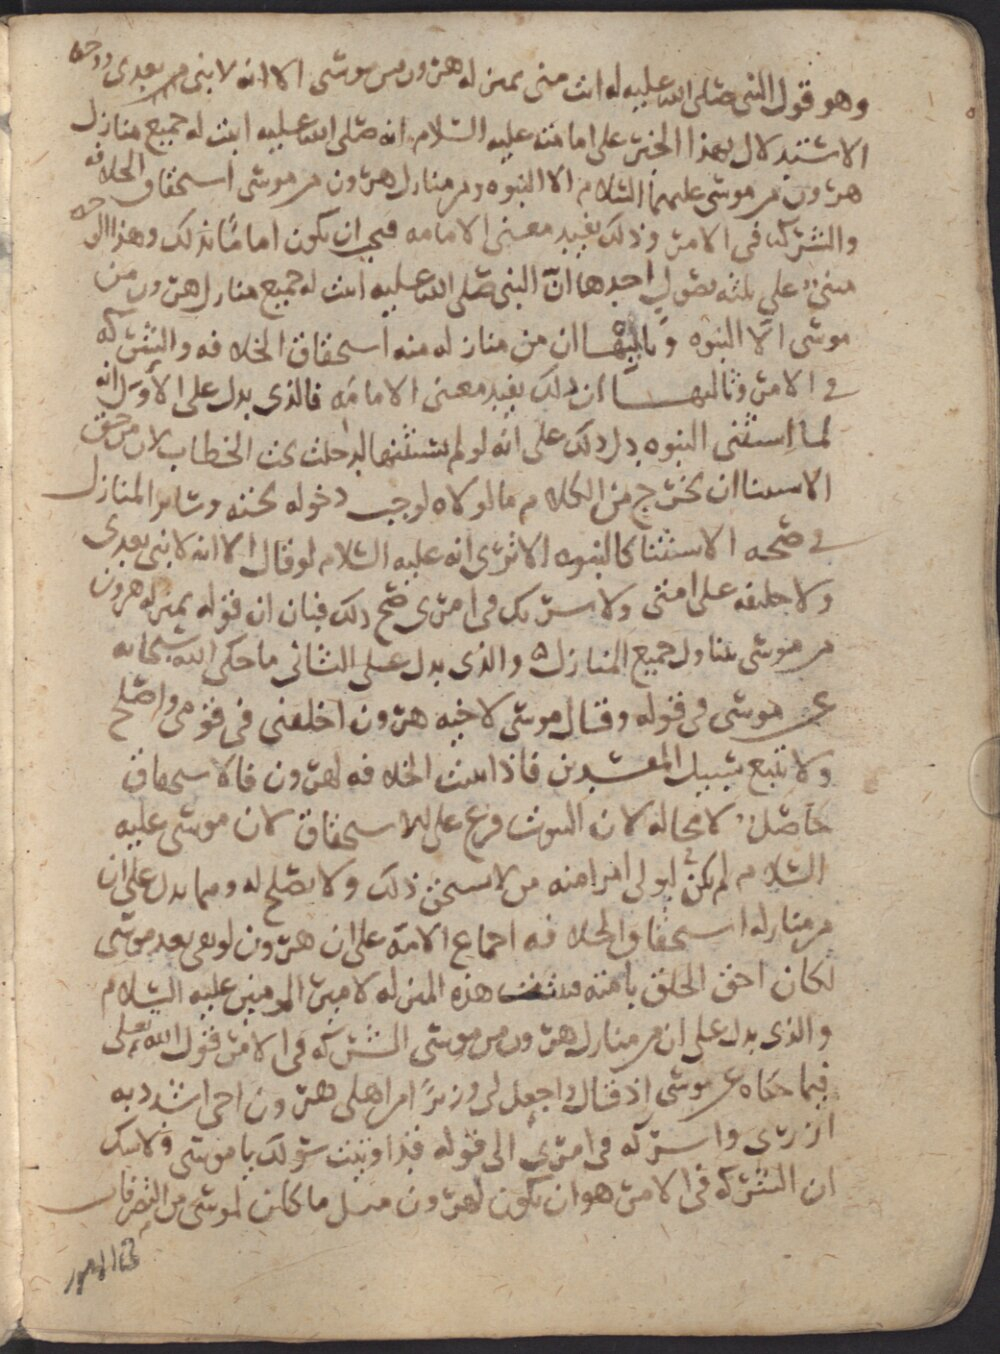 وهو قول النبي صلى الله عليه له انت مني بمنزله هرون من موسى الا انه لا نبي من بعدي ووجه
الاستدلال بهذا الخبر على امامته عليه السلام انه صلى الله عليه اثبت له جميع منازل
هرون من موسى عليهما السلام الا النبوه ومن منازل هرون من موسى استحقاق الخلافه
والشركه في الامر وذلك يفيد معنى الامامه فيجب ان يكون اماما بذلك وهذا
مبني على ثلثه اصول احدها ان النبي صلى الله عليه اثبت له جميع منازل هرون من
موسى الا النبوه وثانيها ان من منازله منه استحقاق الخلافه والشركه
في الامر وثالثها ان ذلك يفيد معنى الامامه فالذي يدل على الاول انه
لما استثنى النبوه دل ذلك على انه لو لم يستثنها لدخلت تحت الخطاب لان من حق
الاستثنا ان يخرج من الكلام ما لولاه لوجب دخوله تحته وسائر المنازل
في صحه الاستثنا كالنبوه الا ترى انه عليه السلام لو قال الا انه لا نبي بعدي
ولا خليفه على امتي ولا شريك في امري صح ذلك فبان ان قوله بمنزله هرون
من موسى يتناول جميع المنازل ه والذي يدل على الثاني ما حكى الله سبحانه
عن موسى في قوله وقال موسى لاخيه هرون اخلفني في قومي واصلح
ولا تتبع سبيل المفسدين فاذا ثبتت الخلافه لهرون فالاستحقاق
حاصل لا محاله لان الثبوت فرع على الاستحقاق لان موسى عليه
السلام لم يكن ليولي امرا منه من لا يستحق ذلك ولا يصلح له ومما يدل على ان
من منازله استحقاق الخلافه اجماع الامه على ان هرون لو بقي بعد موسى
لكان احق الخلق بامته فثبتت هذه المنزله لامير المومنين عليه السلام
والذي يدل على ان من منازل هرون من موسى الشركه في الامر قول الله تعالى
فيما حكاه عن موسى اذ قال واجعل لي وزيرا من اهلي هرون اخي اشدد به
ازري واشركه في امري الى قوله قد اوتيت سؤلك يا موسى ولا شك
ان الشركه في الامر هو ان يكون لهرون مثل ما كان لموسى من التصرف
في الامور